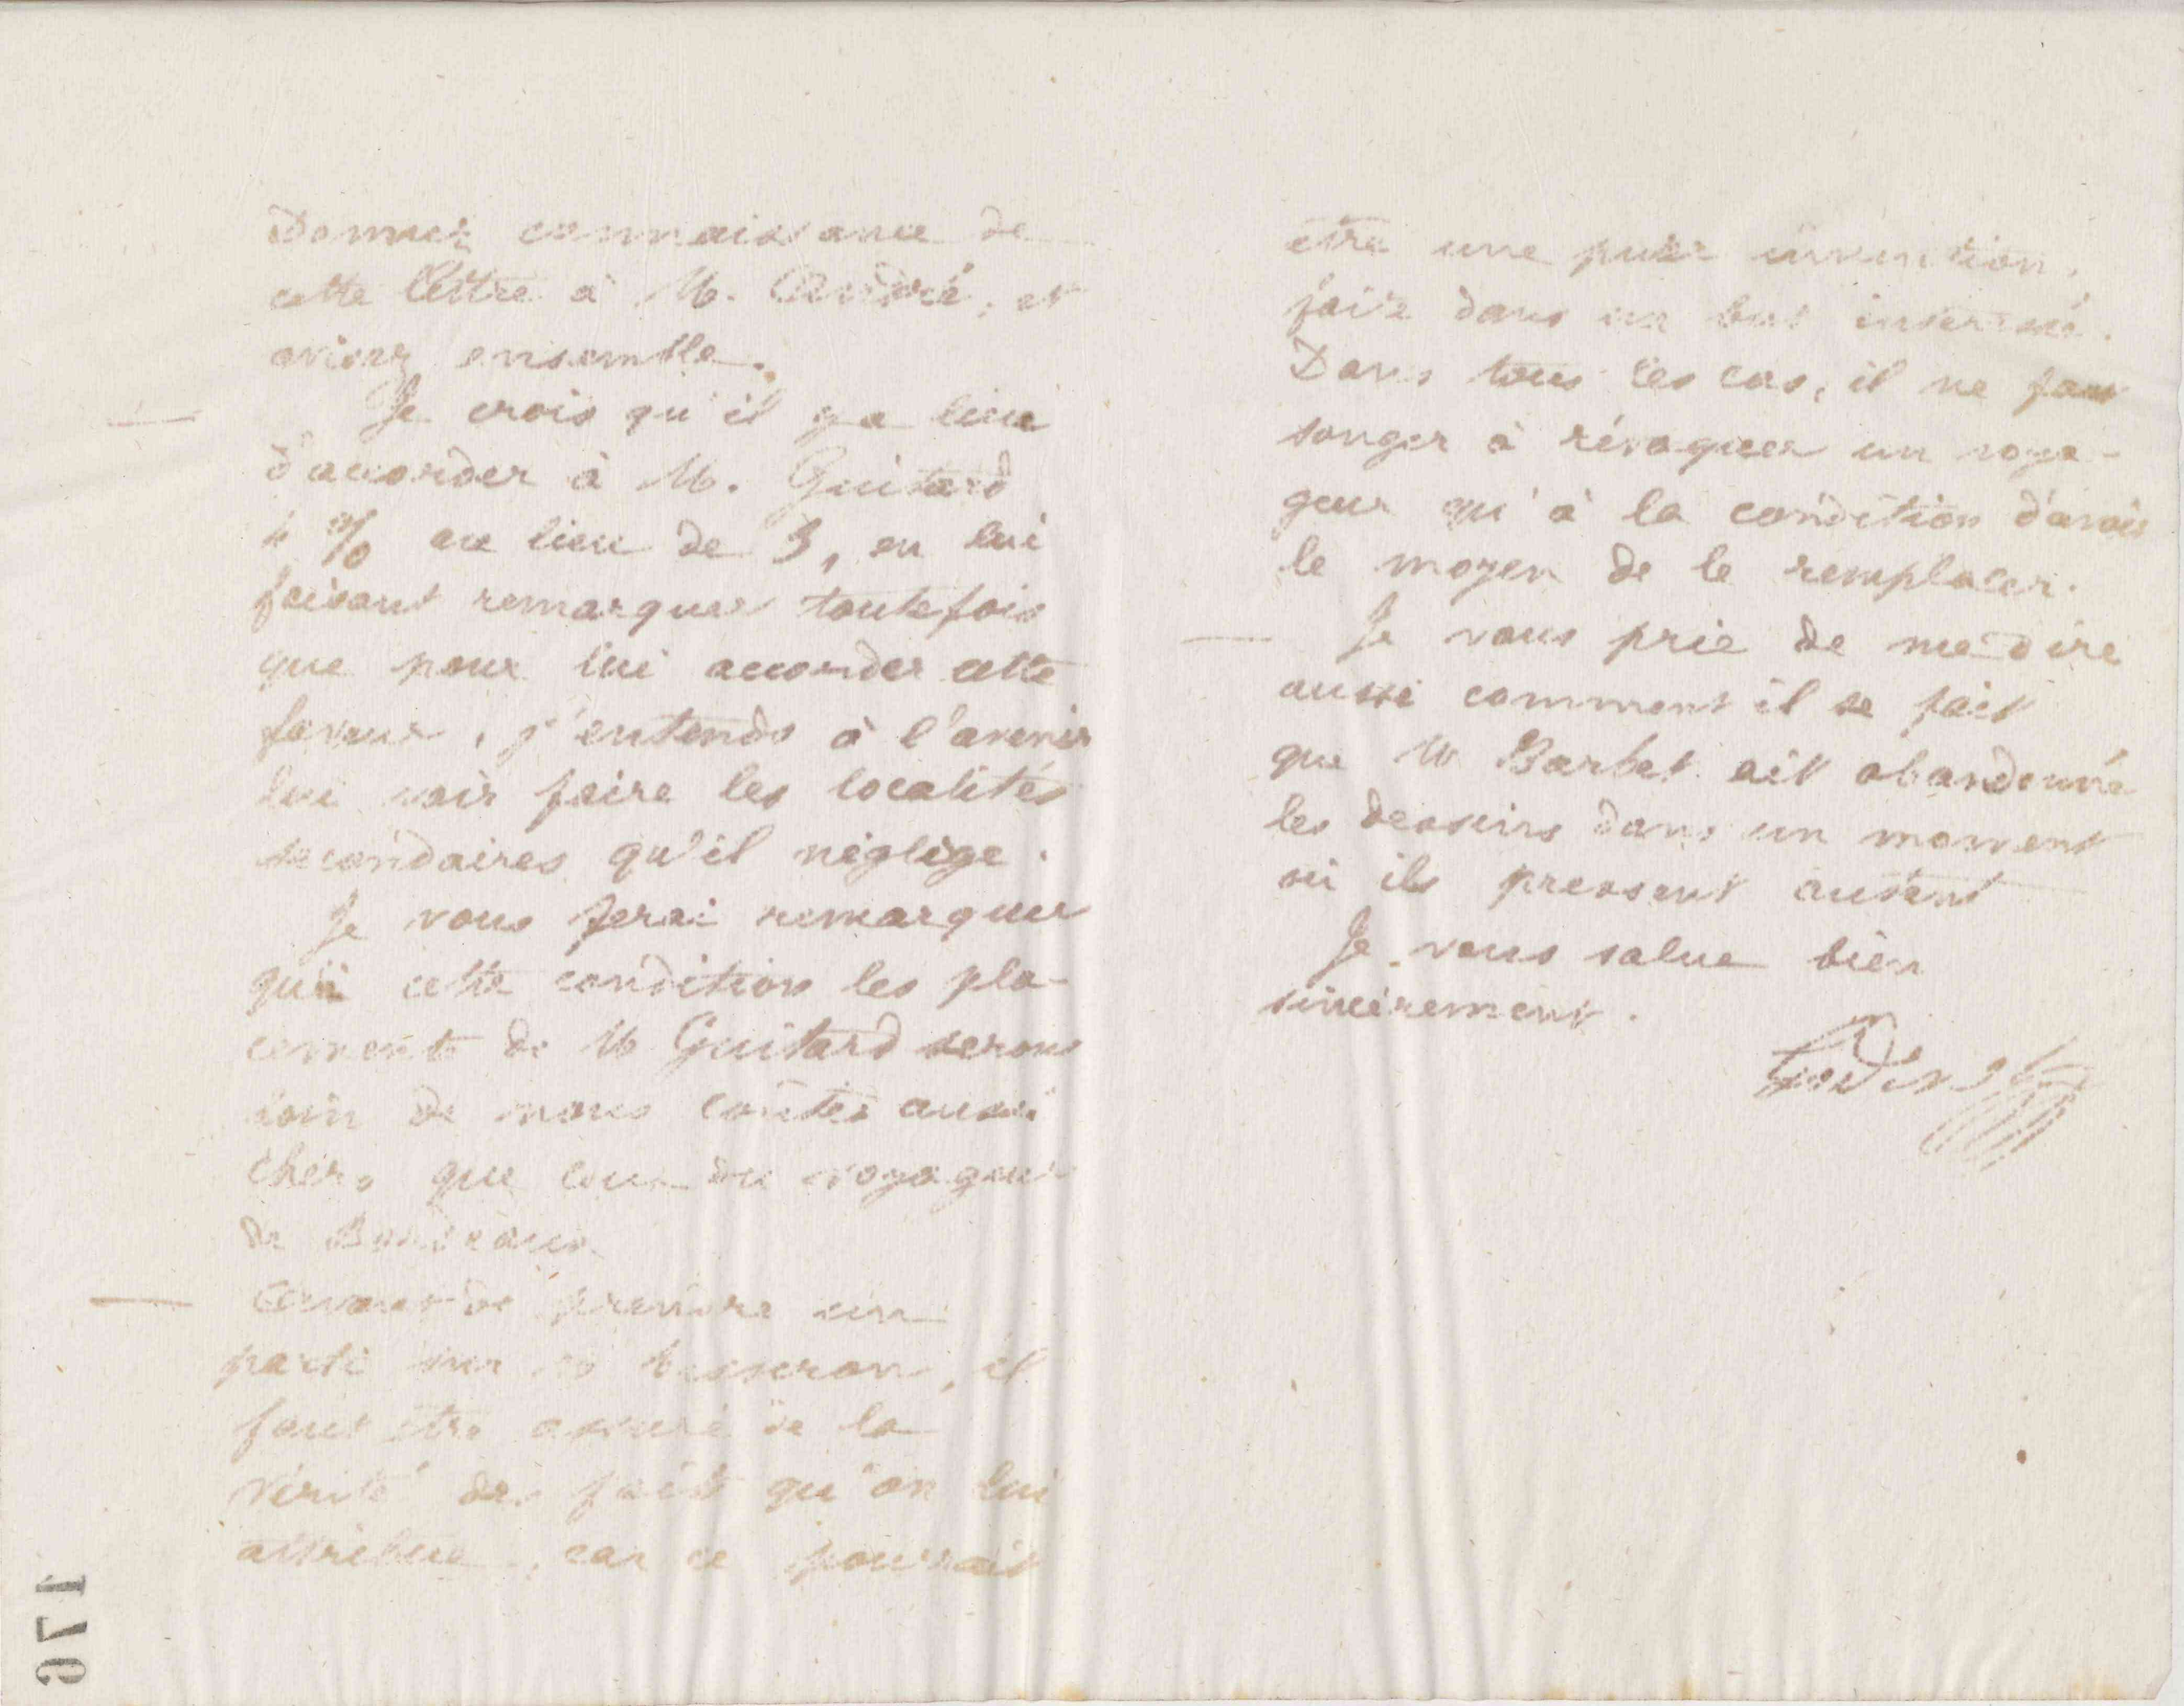 Donnez connaissance de
cette lettre à M. André, et
avisez ensemble.
Je crois qu'il y a lieu
d'accorder à M. Guitard
4 % au lieu de 3, en lui
faisant remarquer toutefois
que pour lui accorder cette
faveur, j'entends à l'avenir
lui voir faire les localités
secondaires qu'il néglige.
Je vous ferai remarquer
qu'à cette condition les pla-
cements de M Guitard seront
loin de nous coûter aussi
chers que ceux du voyageur
de Bordeaux
Avant de prendre un
parti sur , il
faut être assuré de la
vérité des faits qu'on lui
attribue, car ce pourrait
être une pure invention,
faite dans un but intéressé.
Dans tous les cas, il ne faut
songer à révoquer un voya-
geur qu'à la condition d'avoir
le moyen de le remplacer.
Je vous prie de me dire
aussi comment il se fait
que M Barbet ait abandonné
les dessins dans un moment
où ils pressent autant
Je vous salue bien
sincèrement.
Godin
176